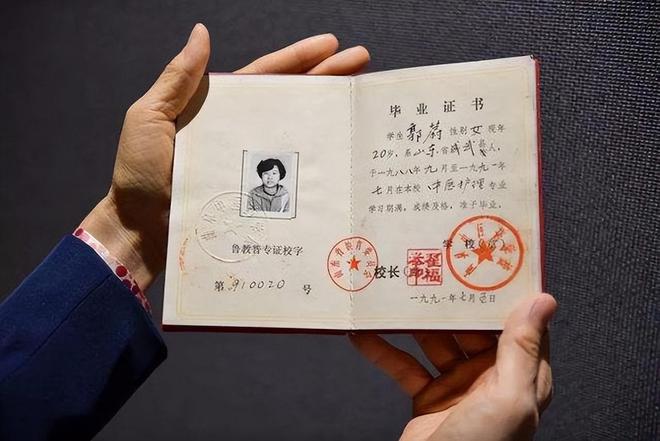 鲁教普专证校字
第 910020 号
毕业证书
学生 郭蔚 性别 女 现年
20岁，系山东省成武县人，
于一九八八年九月至一九九一年
七月在本校 中医护理 专业
学习期满，成绩及格，准予毕业。
学校（章）
校长
一九九一年七月五日